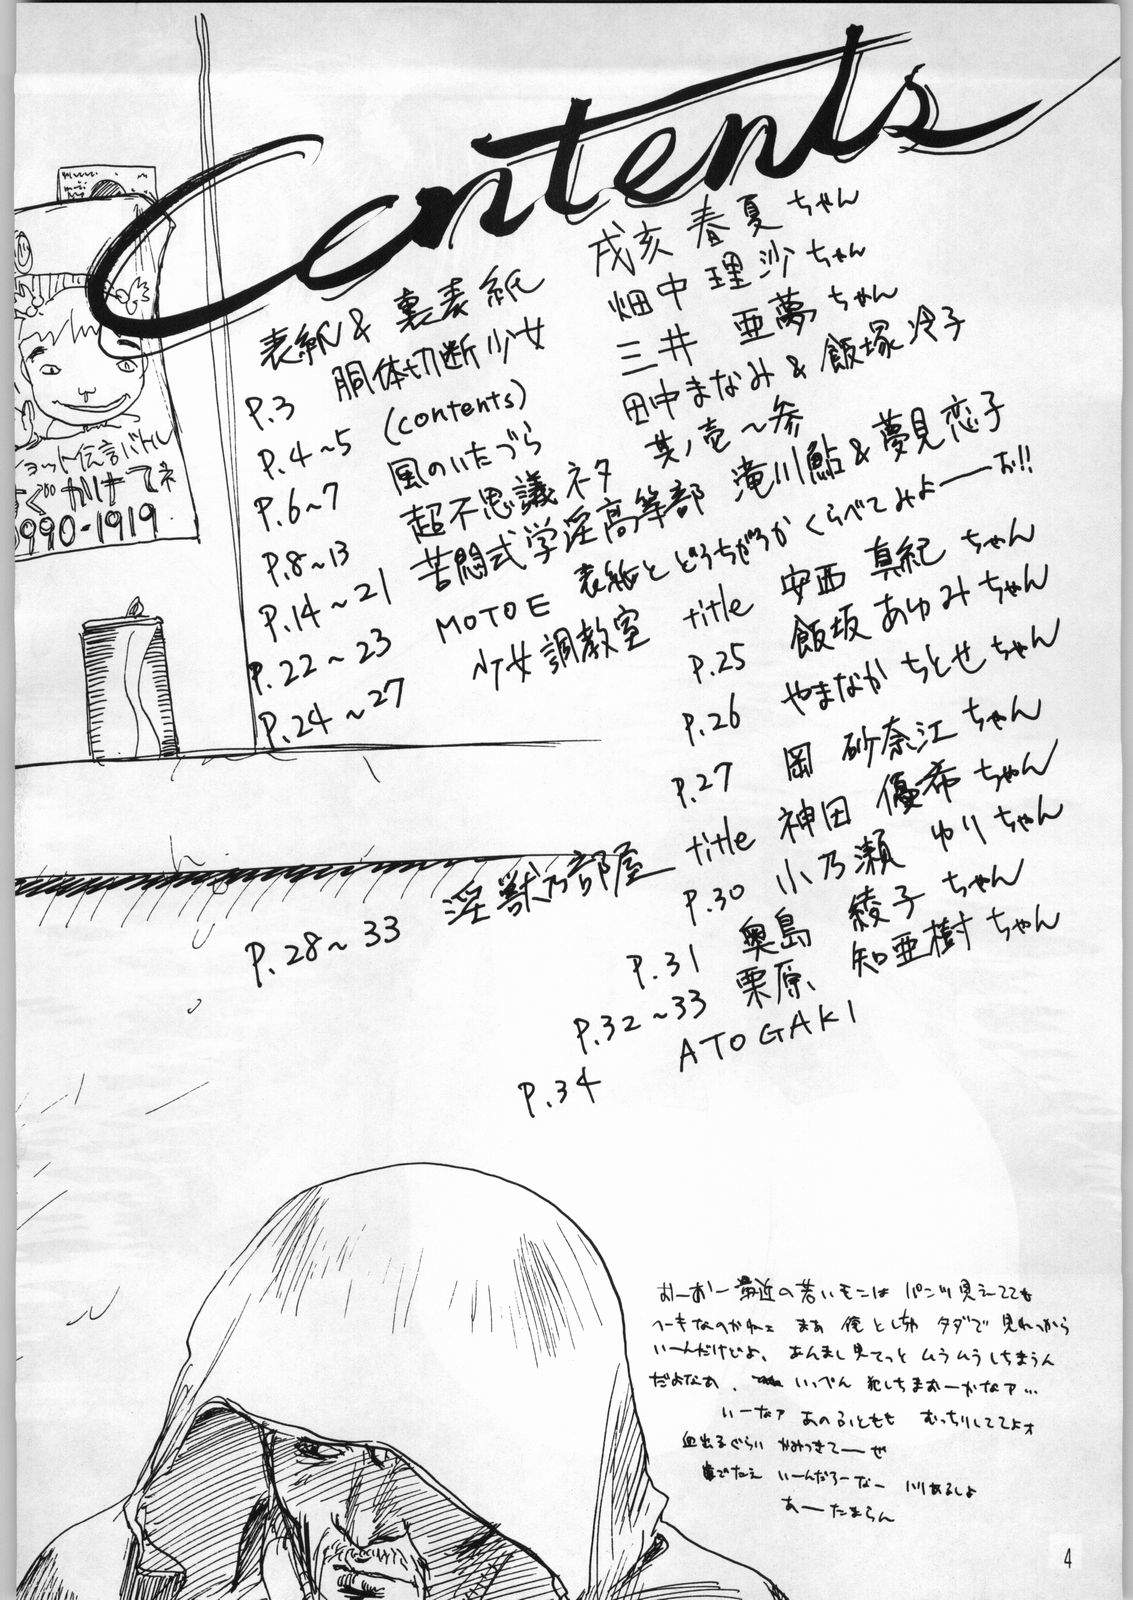 Contents
表紙& 裏表紙 戌亥 春夏ちゃん
P.3 胴体切断少女 畑中 理沙ちゃん
P.4～5 (contents) 三井 亜夢ちゃん
P.6～7 風のいたづら 田中まなみ&飯塚冷子
P.8～13 超不思議ネタ 其ノ壱～参
P.14～21 苦悶式学淫高等部 滝川鮎&夢見恋子
P.22～23 MOTOE 表紙とどうちがうか くらべてみよーーお!!
P.24～27 少女調教室 title 安西 真紀ちゃん
P.25 飯坂 あゆみちゃん
P.26 やまなか ちとせちゃん
P.27 岡 砂奈江ちゃん
P.28～33 淫獣乃部屋 title 神田 優希ちゃん
P.30 小乃瀬 ゆりちゃん
P.31 奥島 綾子ちゃん
P.32～33 栗原、知亜樹ちゃん
P.34 ATOGAKI
ョット伝言バトル
すぐ かけてネ
0990-1919
おーおー最近の若いモンは パンツ見えてても
ヘーキなのかねェ まあ 俺としちゃ タダで 見れっから
いーんだけどよ、あんまし見てっと ムラムラしちまうん
だよなぁ、いっぺん 犯しちまおーかなァ…
いーなァ あのふともも むっちりしててよォ
血出るぐらい かみつきてーーぜ
いーんだろーなー
あーたまらん
4